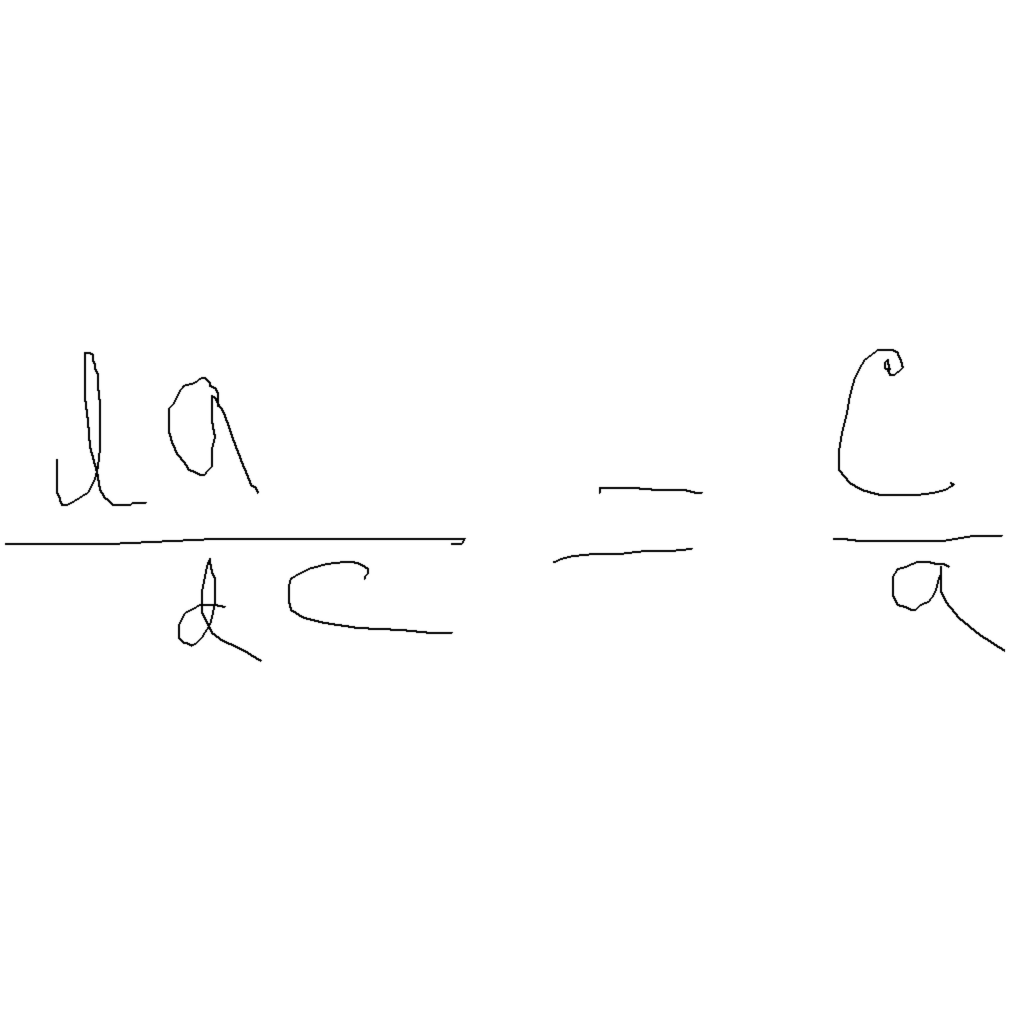 \frac{da}{dc} = \frac{c}{a}